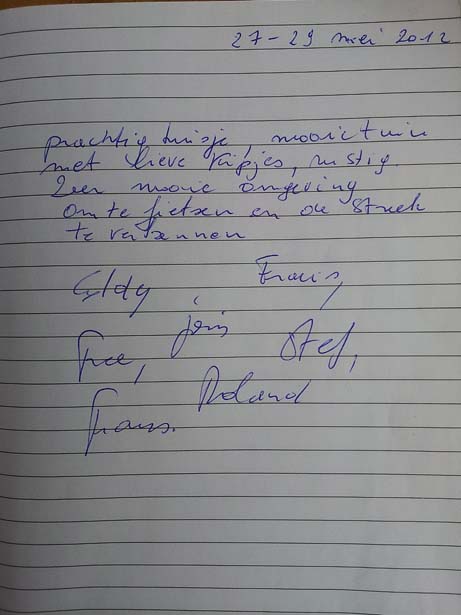 27-29 mei 2012
prachtig huisje, mooie tuin
met lieve kipjes, rustig.
Zeer mooie omgeving
om te fietsen en de streek
te verkennen
Eddy, Francis,
joris
Stef,
Roland
Frans.